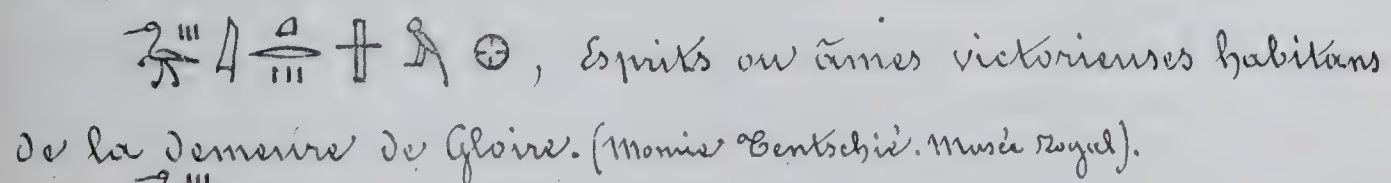 , Esprits ou âmes victorieuses habitans
de la demeure de Gloire. (Momie Tentschié. Musée Royal).